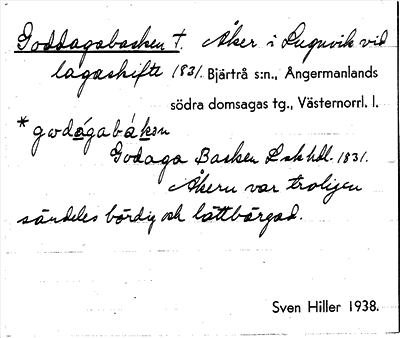 Goddagabacken †. Åker i Lugnvik vid
lagaskifte 1831. Bjärtrå s:n., Ångermanlands
södra domsagas tg., Västernorrl. l.
*godágabákən
Godaga Backen L sk hdl. 1831.
Åkern var troligen
särdeles bördig och lättbärgad.
Sven Hiller 1938.